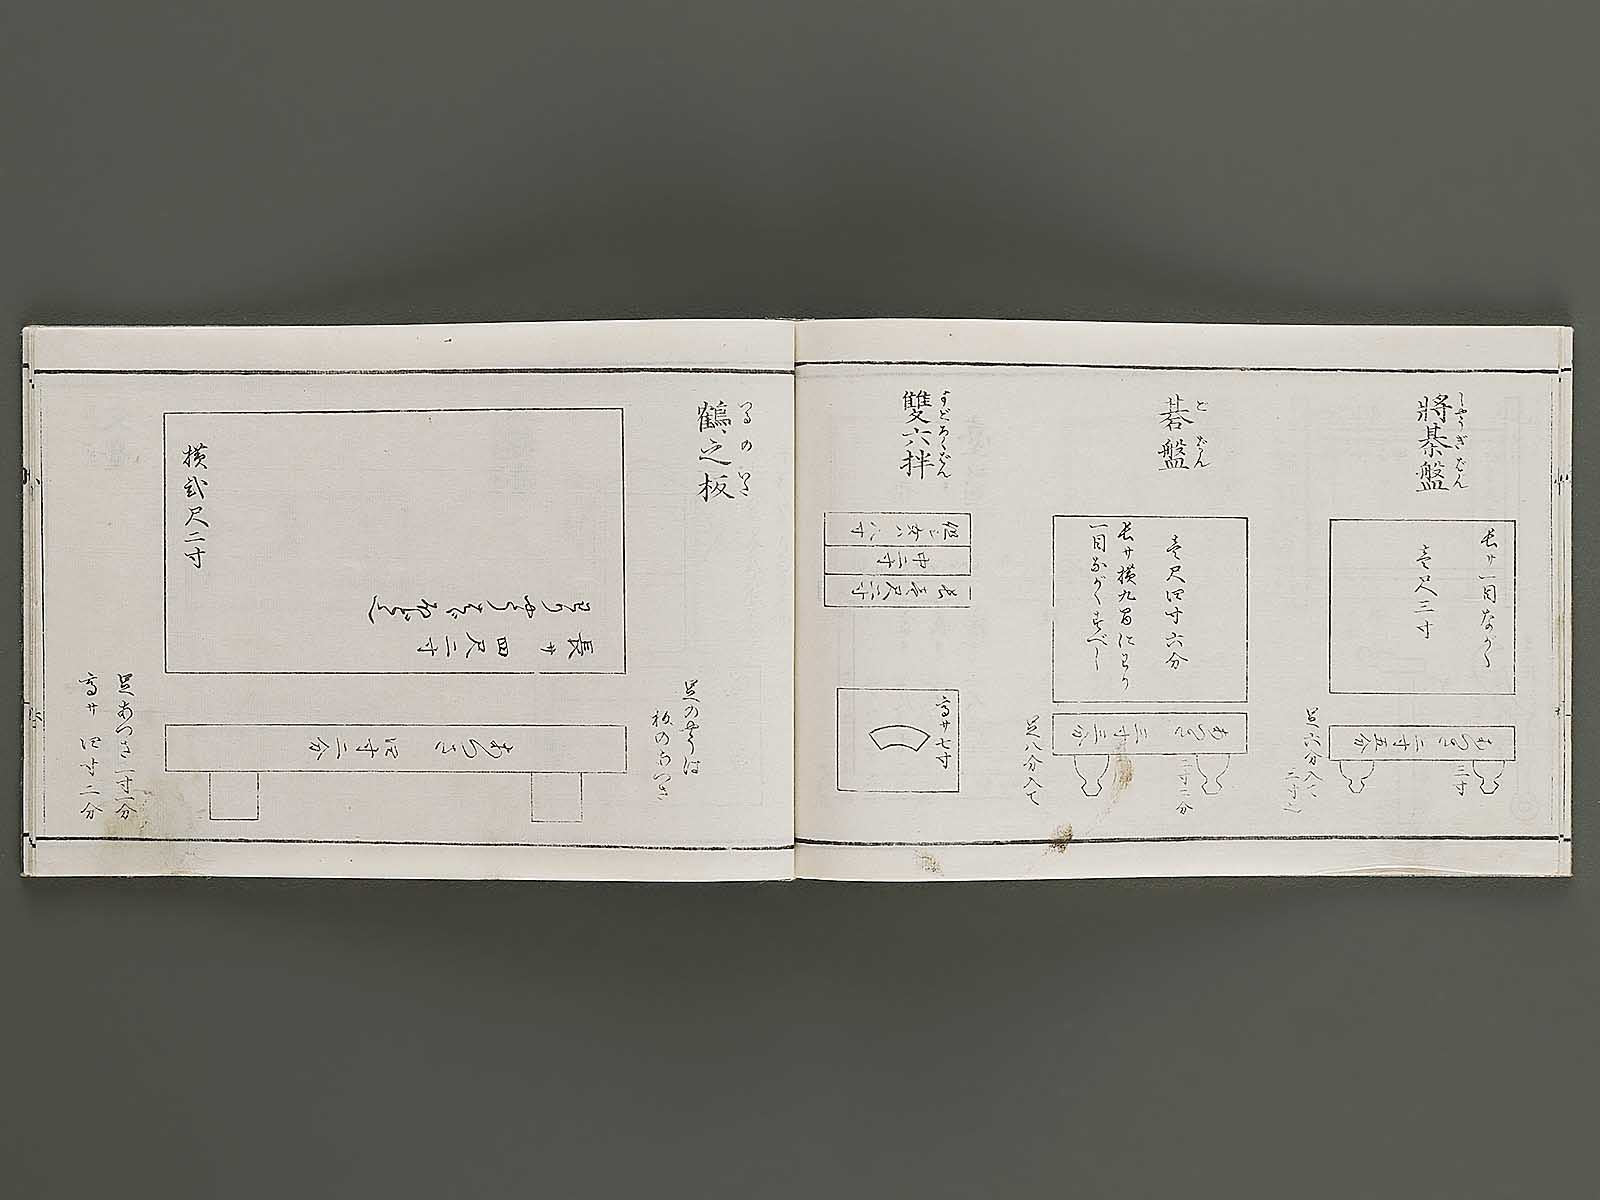 將棊盤
しやうぎばん
長サ一目ながく
壱尺三寸
あつさ三寸五分
三寸
足六分入て
二寸
碁盤
ごばん
壱尺四寸六分
長サ横九
一目ながくすべし
あつさ三寸三分
三寸二分
足八分入て
雙六拌
すごろくばん
八寸
中二寸
長壱尺二寸
高サ七寸
鶴之板
つるのいた
横弐尺二寸
長サ四尺二寸
足の
板のあつさ
あつさ四寸二分
足あつさ一寸一分
高サ四寸二分